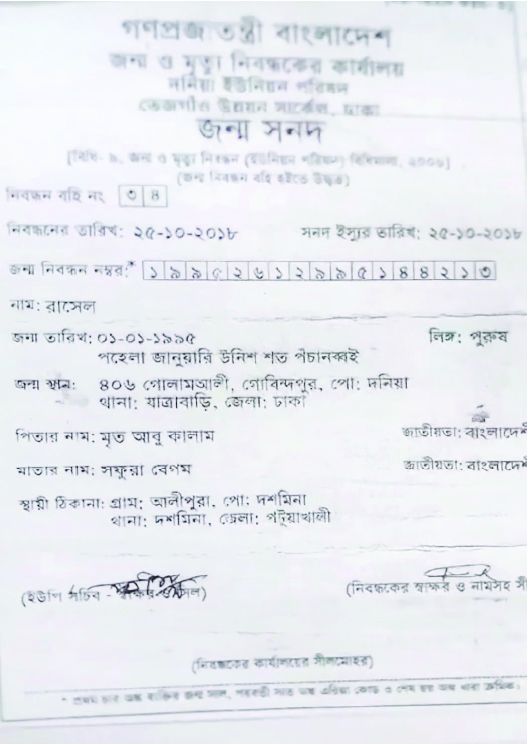 গণপ্রজাতন্ত্রী বাংলাদেশ
জন্ম ও মৃত্যু নিবন্ধকের কার্যালয়
দনিয়া ইউনিয়ন পরিষদ
তেজগাঁও উন্নয়ন সার্কেল, ঢাকা
জন্ম সনদ
[বিধি- ৯, জন্ম ও মৃত্যু নিবন্ধন (ইউনিয়ন পরিষদ) বিধিমালা, ২০০৬]
(জন্ম নিবন্ধন বহি হইতে উদ্ধৃত)
নিবন্ধন বহি নং ৩৪
নিবন্ধনের তারিখ: ২৫-১০-২০১৮ সনদ ইস্যুর তারিখ: ২৫-১০-২০১৮
জন্ম নিবন্ধন নম্বর:* ১৯৯৫২৬১২৯৯৫১৪৪২১৩
নাম: রাসেল
জন্ম তারিখ: ০১-০১-১৯৯৫ লিঙ্গ: পুরুষ
পহেলা জানুয়ারি উনিশ শত পঁচানব্বই
জন্ম স্থান: ৪০৬ গোলামআলী, গোবিন্দপুর, পো: দনিয়া
থানা: যাত্রাবাড়ি, জেলা: ঢাকা
পিতার নাম: মৃত আবু কালাম জাতীয়তা: বাংলাদেশ
মাতার নাম: সফুরা বেগম জাতীয়তা: বাংলাদেশ
স্থায়ী ঠিকানা: গ্রাম: আলীপুরা, পো: দশমিনা
থানা: দশমিনা, জেলা: পটুয়াখালী
(ইউপি সচিব - স্বাক্ষর ও সিল) (নিবন্ধকের স্বাক্ষর ও নামসহ সী
(নিবন্ধকের কার্যালয়ের সীলমোহর)
* প্রথম চার অঙ্ক ব্যক্তির জন্ম সাল, পরবর্তী সাত অঙ্ক এরিয়া কোড ও শেষ ছয় অঙ্ক ধারা ক্রমিক।